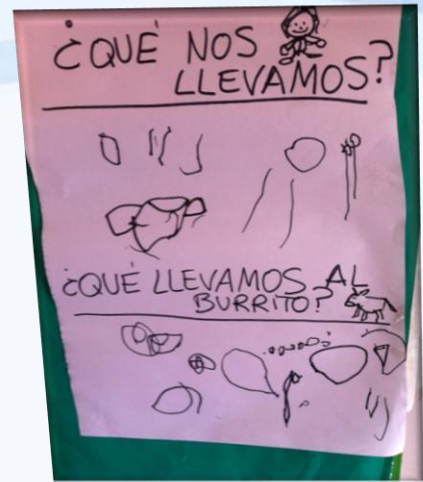 ¿QUÉ NOS
LLEVAMOS?
¿QUÉ LLEVAMOS AL
BURRITO?